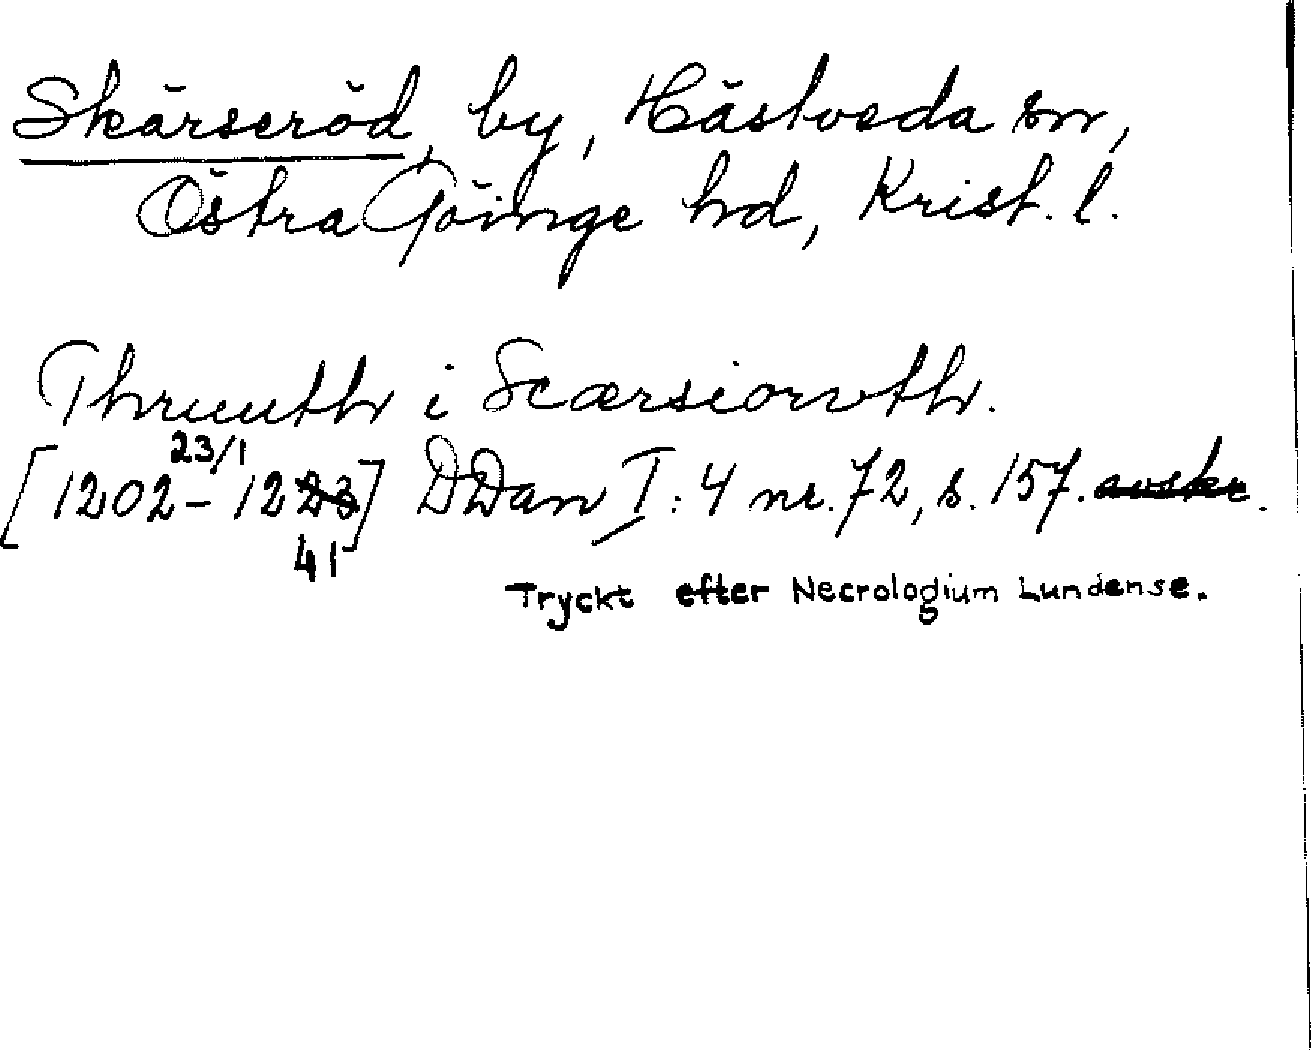 Skärseröd, by, Hästveda sn,
Östra Göinge hd, Krist. l.
Thruuth i Scærsioruth.
23/1
[1202–1223] DDan I:4 nr. 72, s. 157. avskr.
41
Tryckt efter Necrologium Lundense.